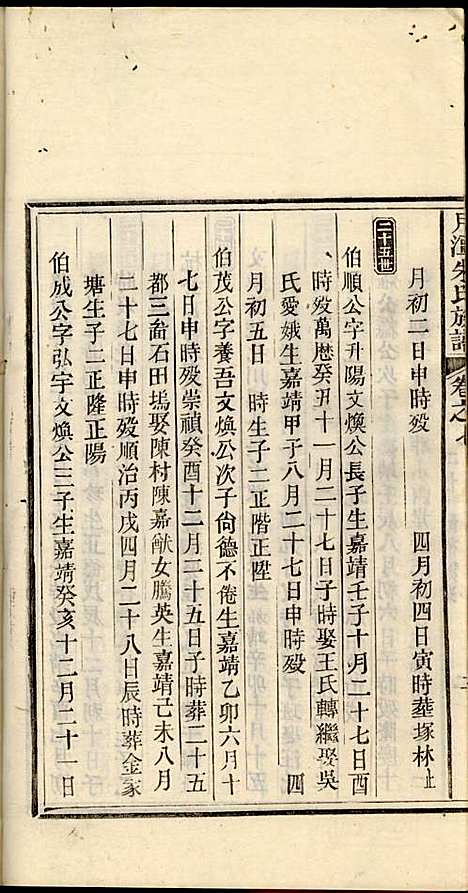 月潭朱氏族譜 卷之
月初二日申時歿 四月初四日寅時葬塚林止
二十五世
伯順公字升陽文煥公長子生嘉靖壬子十月二十七日酉
時歿萬曆癸丑十一月二十七日子時娶王氏轉繼娶吳
氏愛娥生嘉靖甲子八月二十七日申時歿 四
月初五日 時生子二正階正陞
伯茂公字養吾文煥公次子尙德不倦生嘉靖乙卯六月十
七日申時歿崇禎癸酉十二月二十五日子時葬二十五
都三畝石田塢娶陳村陳嘉猷女騰英生嘉靖己未八月
二十七日申時歿順治丙戌四月二十八日辰時葬金家
塘生子二正隆正陽
伯成公字弘宇文煥公三子生嘉靖癸亥十二月二十一日